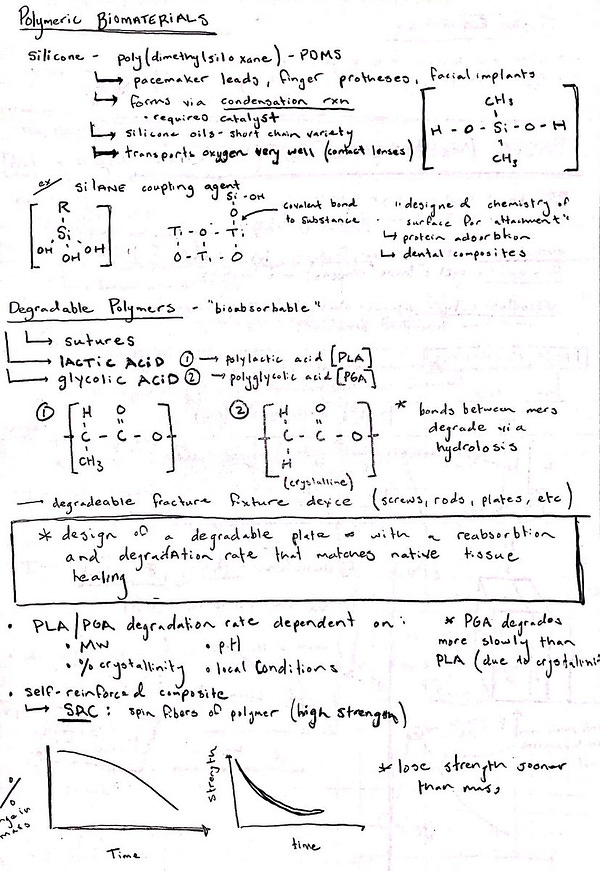 Polymeric BIOMATERIALS
Silicone - poly(dimethylsiloxane) - PDMS
↳ pacemaker leads, finger protheses, facial implants
↳ forms via condensation rxn
• required catalyst
↳ silicone oils - short chain variety
↳ transports oxygen very well (contact lenses)
CH3
H - O - Si - O - H
CH3
ex/ SILANE coupling agent
R
Si
OH OH OH
Si - OH
O
Ti - O - Ti
O - Ti - O
covalent bond
to substance
"designed chemistry of
surface for attachment"
↳ protein adsorbtion
↳ dental composites
Degradable Polymers - "bioabsorbable"
↳ sutures
↳ LACTIC ACID ① → polylactic acid [PLA]
↳ glycolic ACID ② → polyglycolic acid [PGA]
①
H O
C - C - O
CH3
②
H O
C - C - O
H
(crystalline)
* bonds between mers
degrade via
hydrolosis
— degradeable fracture fixture device (screws, rods, plates, etc)
* design of a degradable plate with a reabsorbtion
and degradation rate that matches native tissue
healing
• PLA/PGA degradation rate dependent on:
• MW • pH
• % crystallinity • local conditions
* PGA degrades
more slowly than
PLA (due to crystalinit
• self-reinforced composite
↳ SRC: spin fibers of polymer (high strength)
%
nge in
mass
Time
Strength
time
* lose strength sooner
than mass